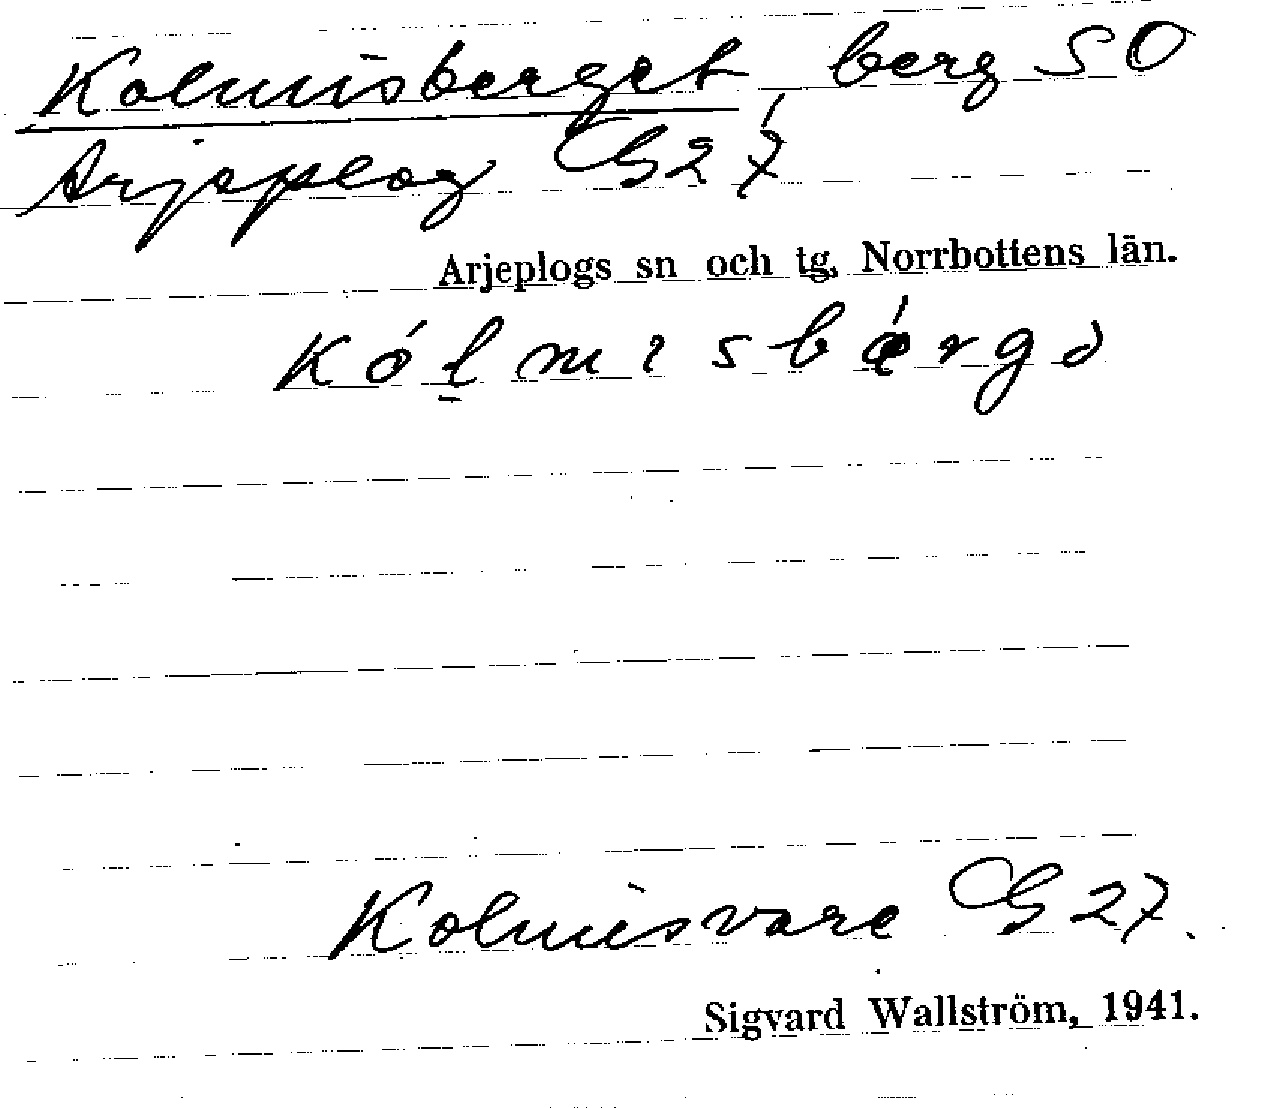 Kolmisberget, berg SO
Arjeplog GS 27
Arjeplogs sn och tg, Norrbottens län.
kól̲misbǽrgə
Kolmisvare GS 27.
Sigvard Wallström, 1941.